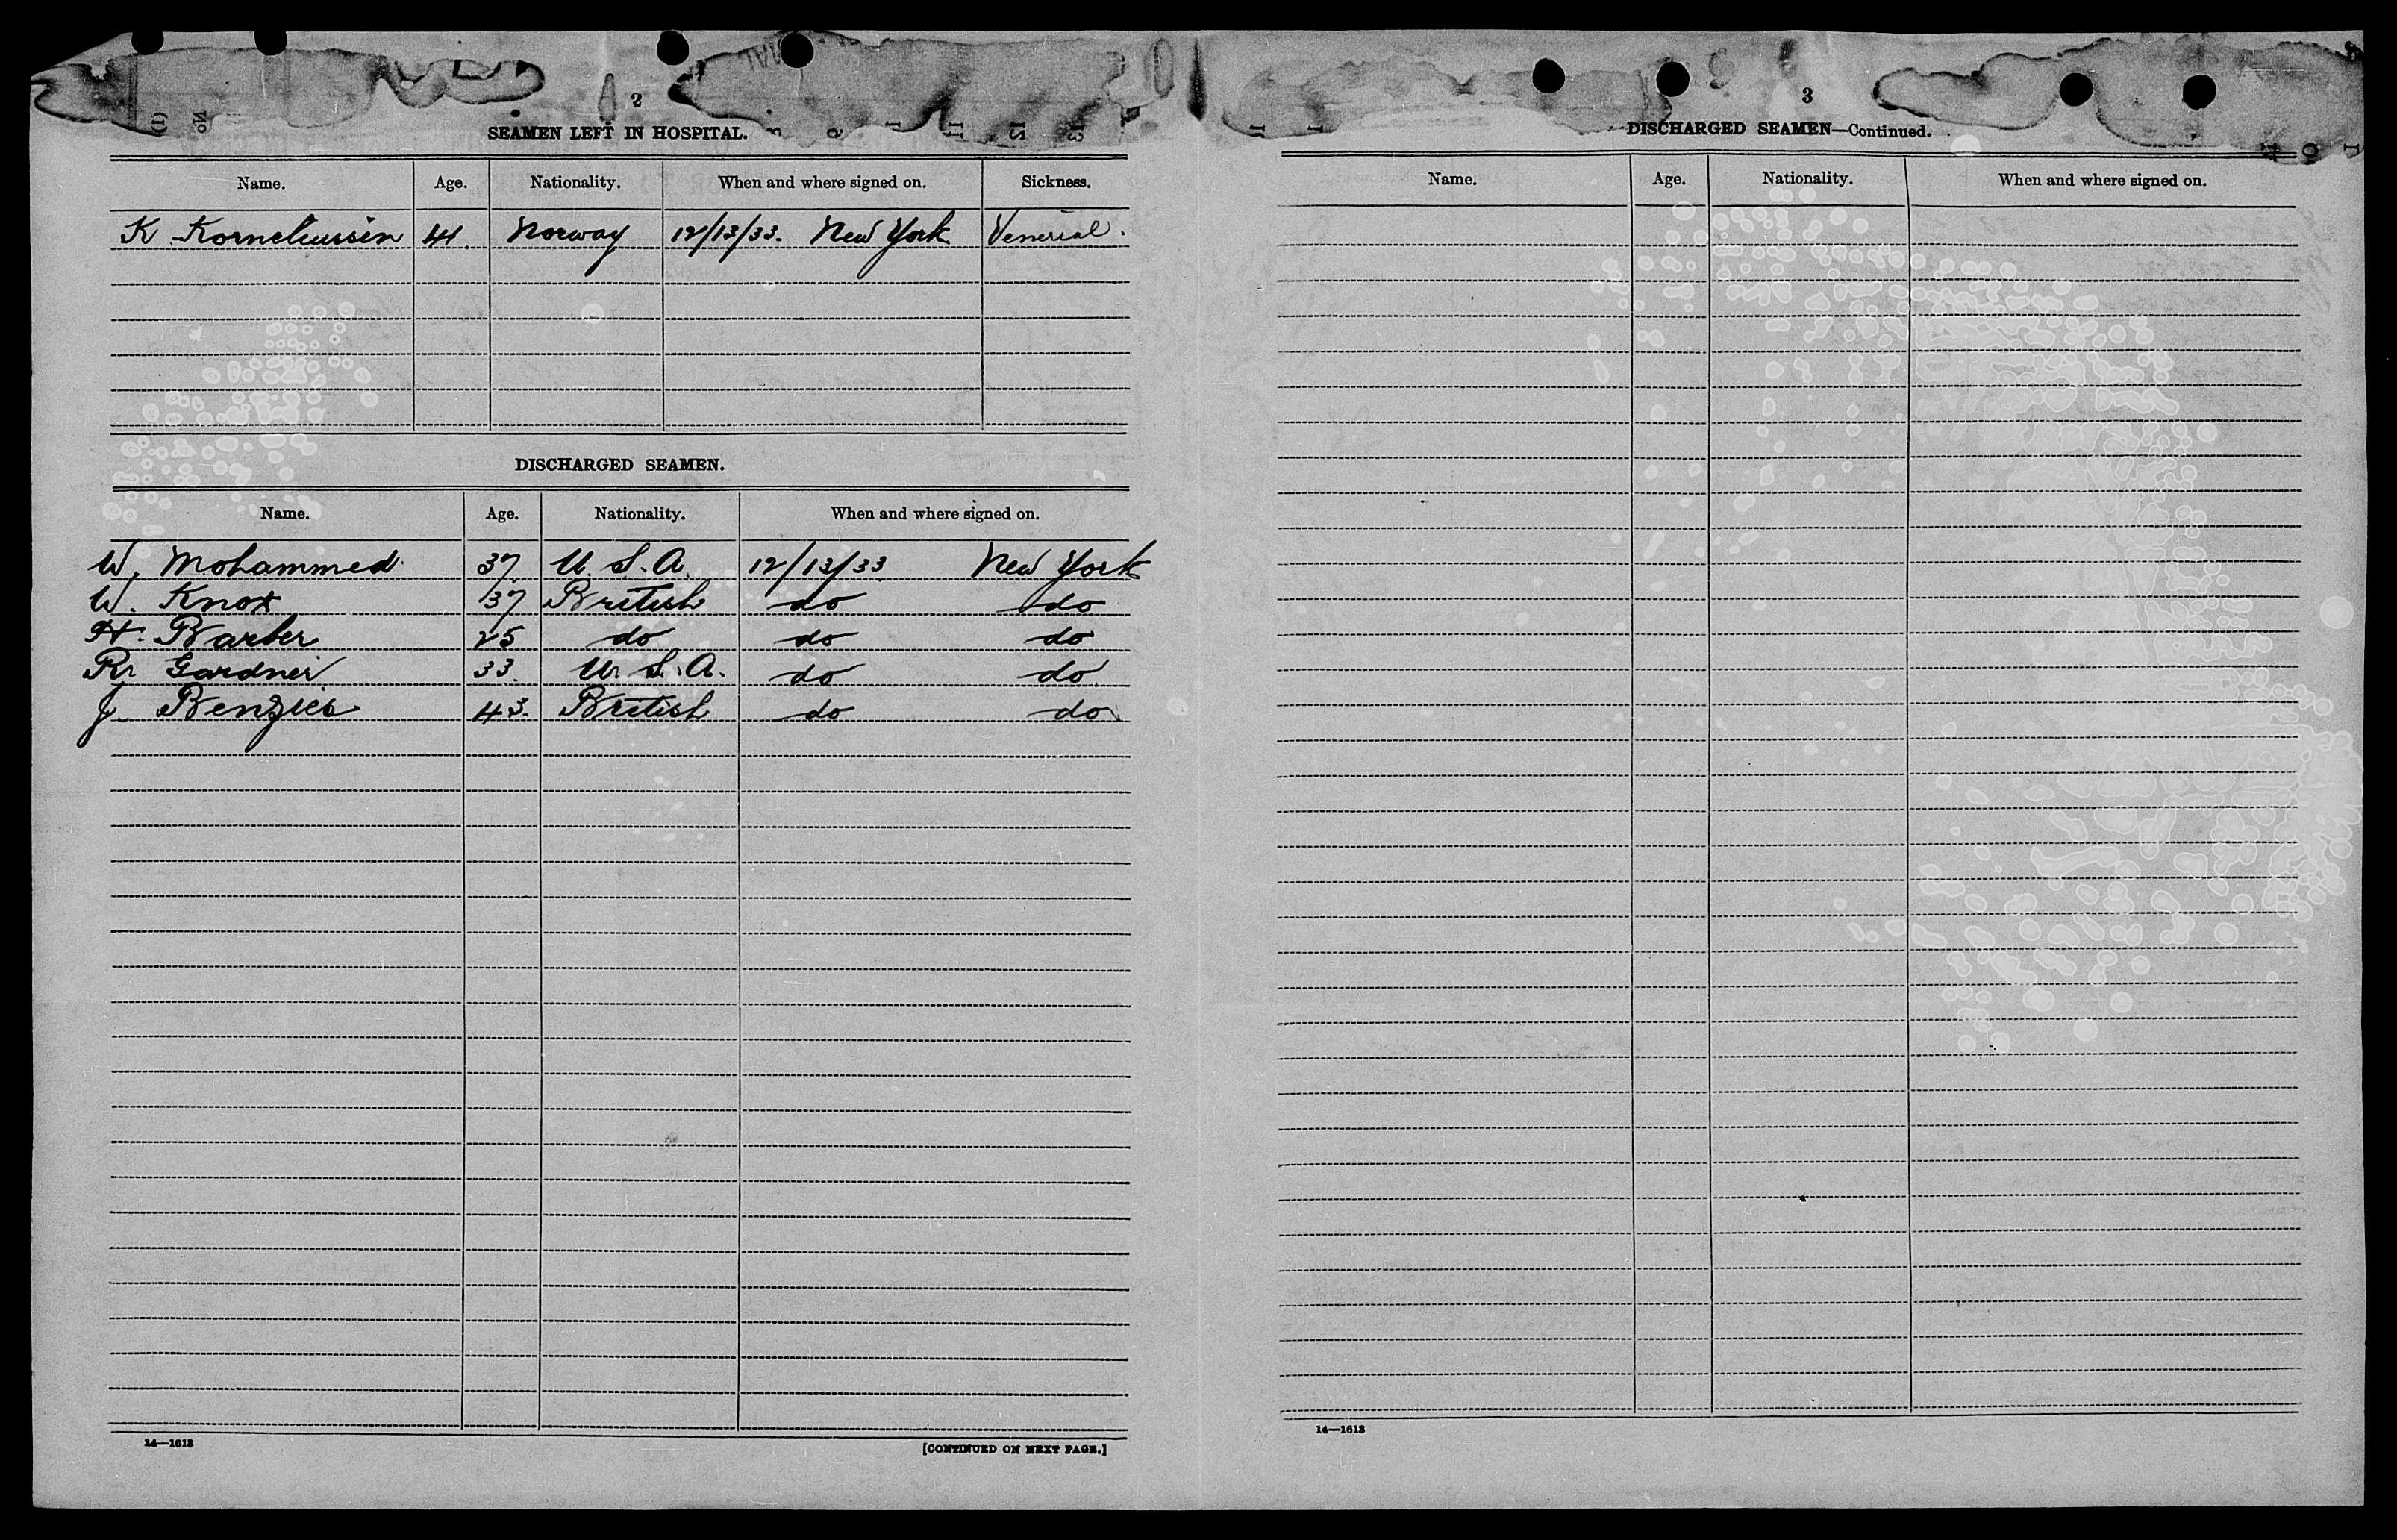 2
SEAMEN LEFT IN HOSPITAL.
Name. Age. Nationality. When and where signed on. Sickness.
K Korneliussen 41. Norway 12/13/33. New York Venerial.
DISCHARGED SEAMEN.
Name. Age. Nationality. When and where signed on.
W. Mohammed 37 U.S.A. 12/13/33 New York
W. Knox 37 British do do
H. Barber 25 do do do
R. Gardner 33. U.S.A. do do
J. Benzies 43. British do do
14—1613
[CONTINUED ON NEXT PAGE.]
3
DISCHARGED SEAMEN—Continued.
Name. Age. Nationality. When and where signed on.
14—1613